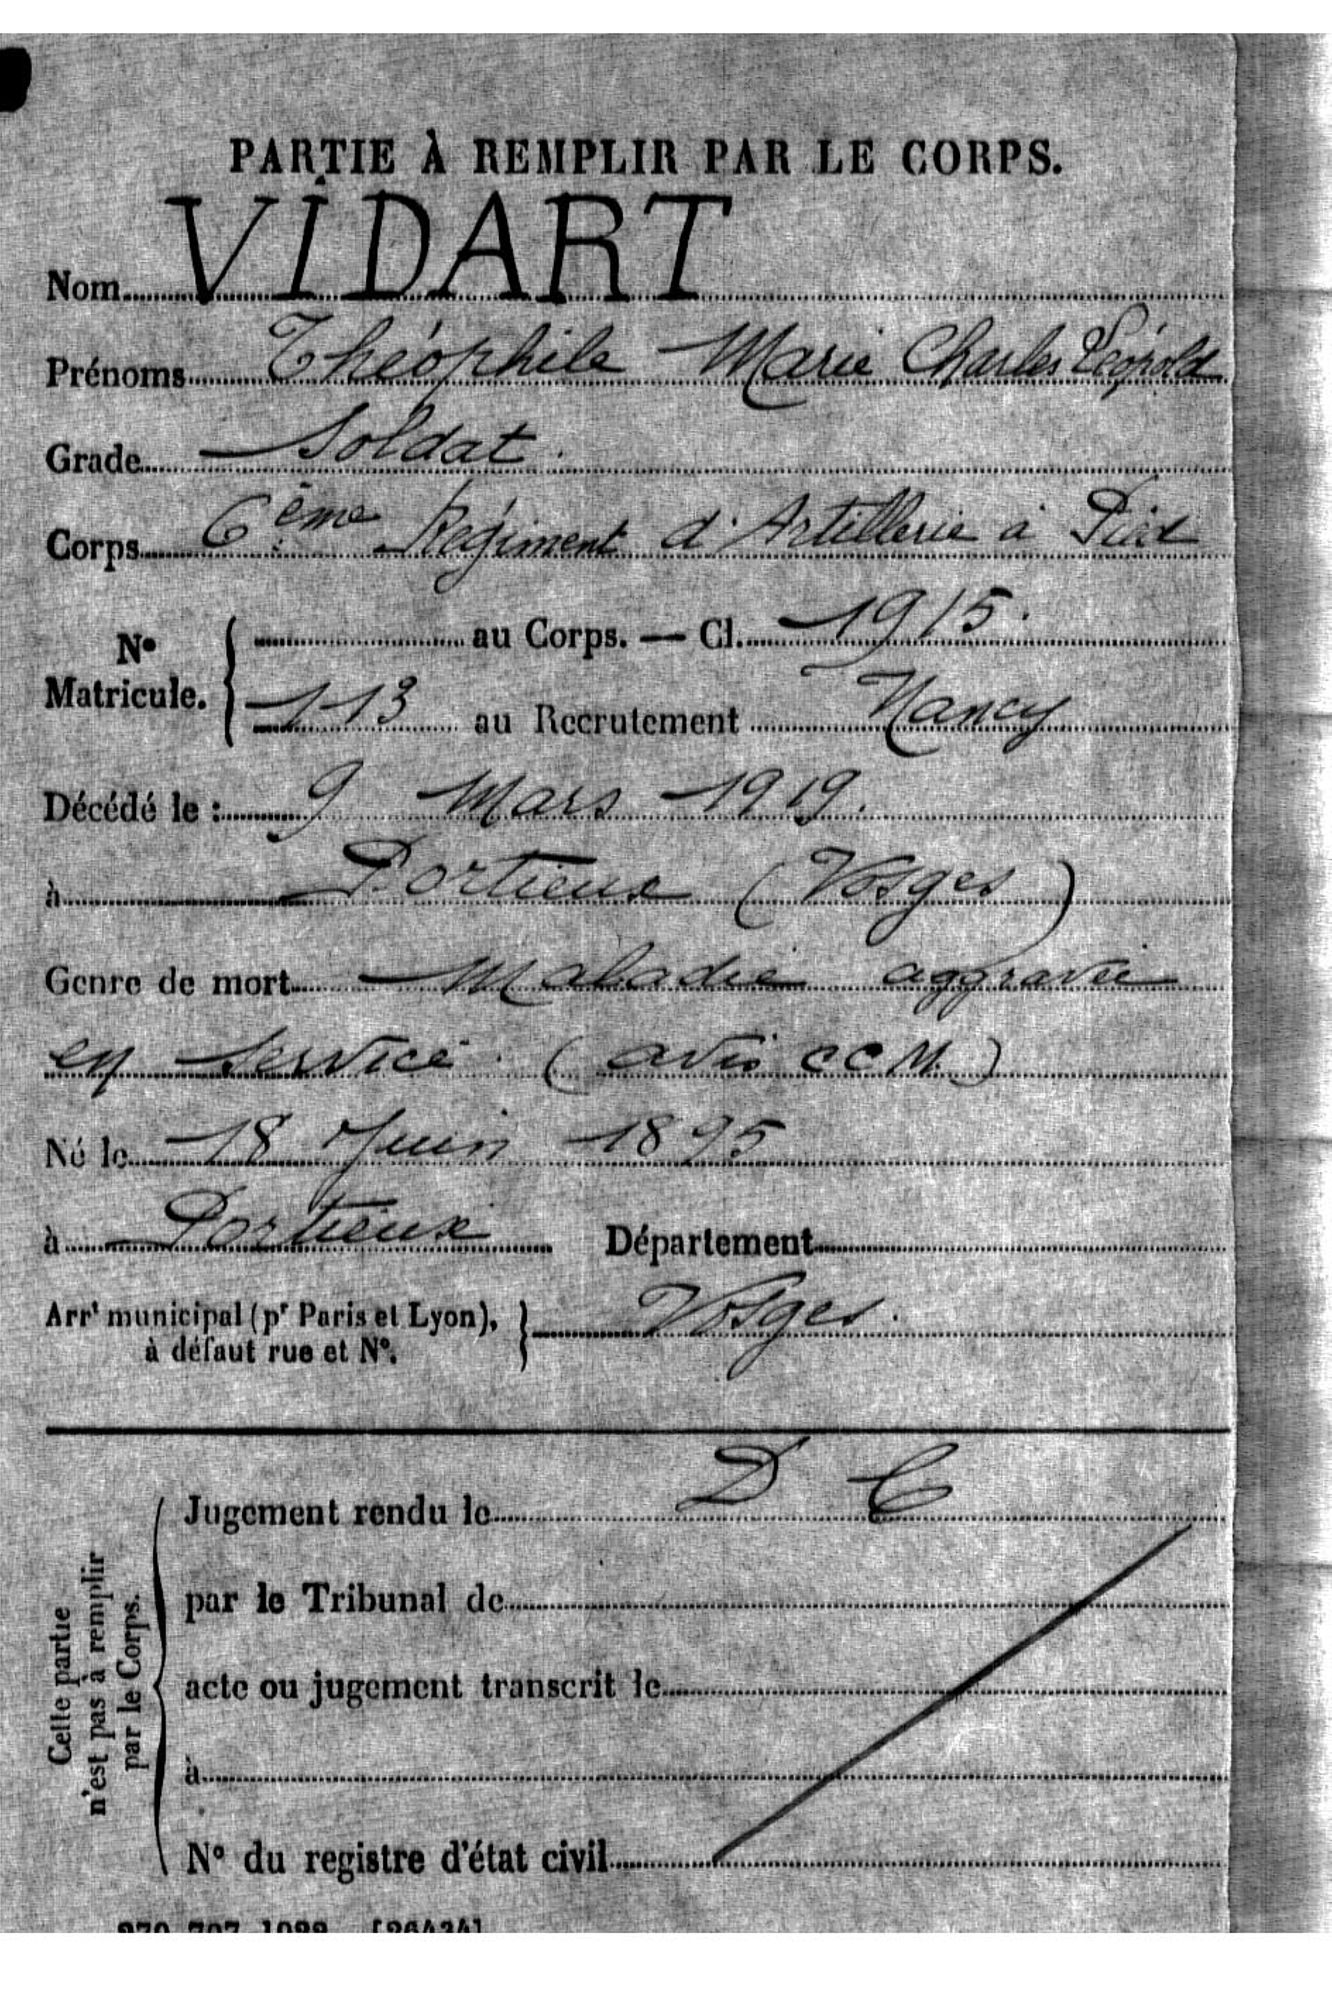 PARTIE À REMPLIR PAR LE CORPS.
Nom VIDART
Prénoms Théophile Marie Charles Léopold
Grade Soldat.
Corps 6ème Régiment d'Artillerie à Pied
No Matricule. { au Corps. — Cl. 1915.
113 au Recrutement Nancy
Décédé le : 9 Mars 1919.
à Portieux (Vosges)
Genre de mort Maladie aggravée
en service. (avis CCM.)
Né le 18 Juin 1895
à Portieux Département
Arrt municipal (pr Paris et Lyon), à défaut rue et No. } Vosges.
D C
Cette partie n'est pas à remplir par le Corps.
Jugement rendu le
par le Tribunal de
acte ou jugement transcrit le
à
No du registre d'état civil